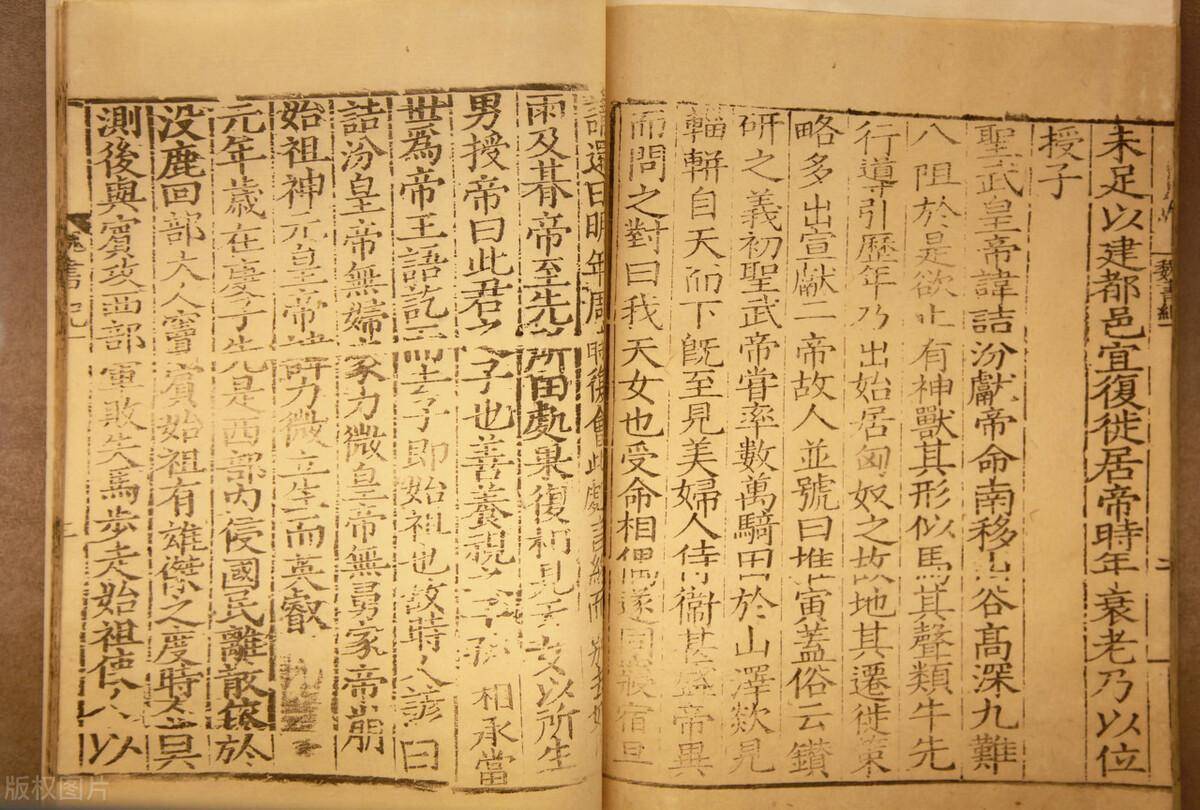 魏書紀一
二
未足以建都邑宜復徙居帝時年衰老乃以位
授子
聖武皇帝諱詰汾獻帝命南移山谷高深九難
八阻於是欲止有神獸其形似馬其聲類牛先
行導引歷年乃出始居匈奴之故地其遷徙策
略多出宣獻二帝故人並號曰推寅蓋俗云鑽
研之義初聖武帝嘗率數萬騎田於山澤欻見
輜軿自天而下既至見美婦人侍衞甚盛帝異
而問之對曰我天女也受命相偶遂同寢宿旦
請還曰明年周時復會此處言終而別去如
雨及朞帝至先所田處果復相見天女以所生
男授帝曰此君之子也善養視之子孫相承當
世爲帝王語訖而去子即始祖也故時人諺曰
詰汾皇帝無婦家力微皇帝無舅家帝崩
始祖神元皇帝諱力微立生而英叡
元年歲在庚子先是西部內侵國民離散依於
没鹿回部大人竇賓始祖有雄傑之度時人莫
測後與賓攻西部軍敗失馬步走始祖使人以
魏書紀一
版权图片